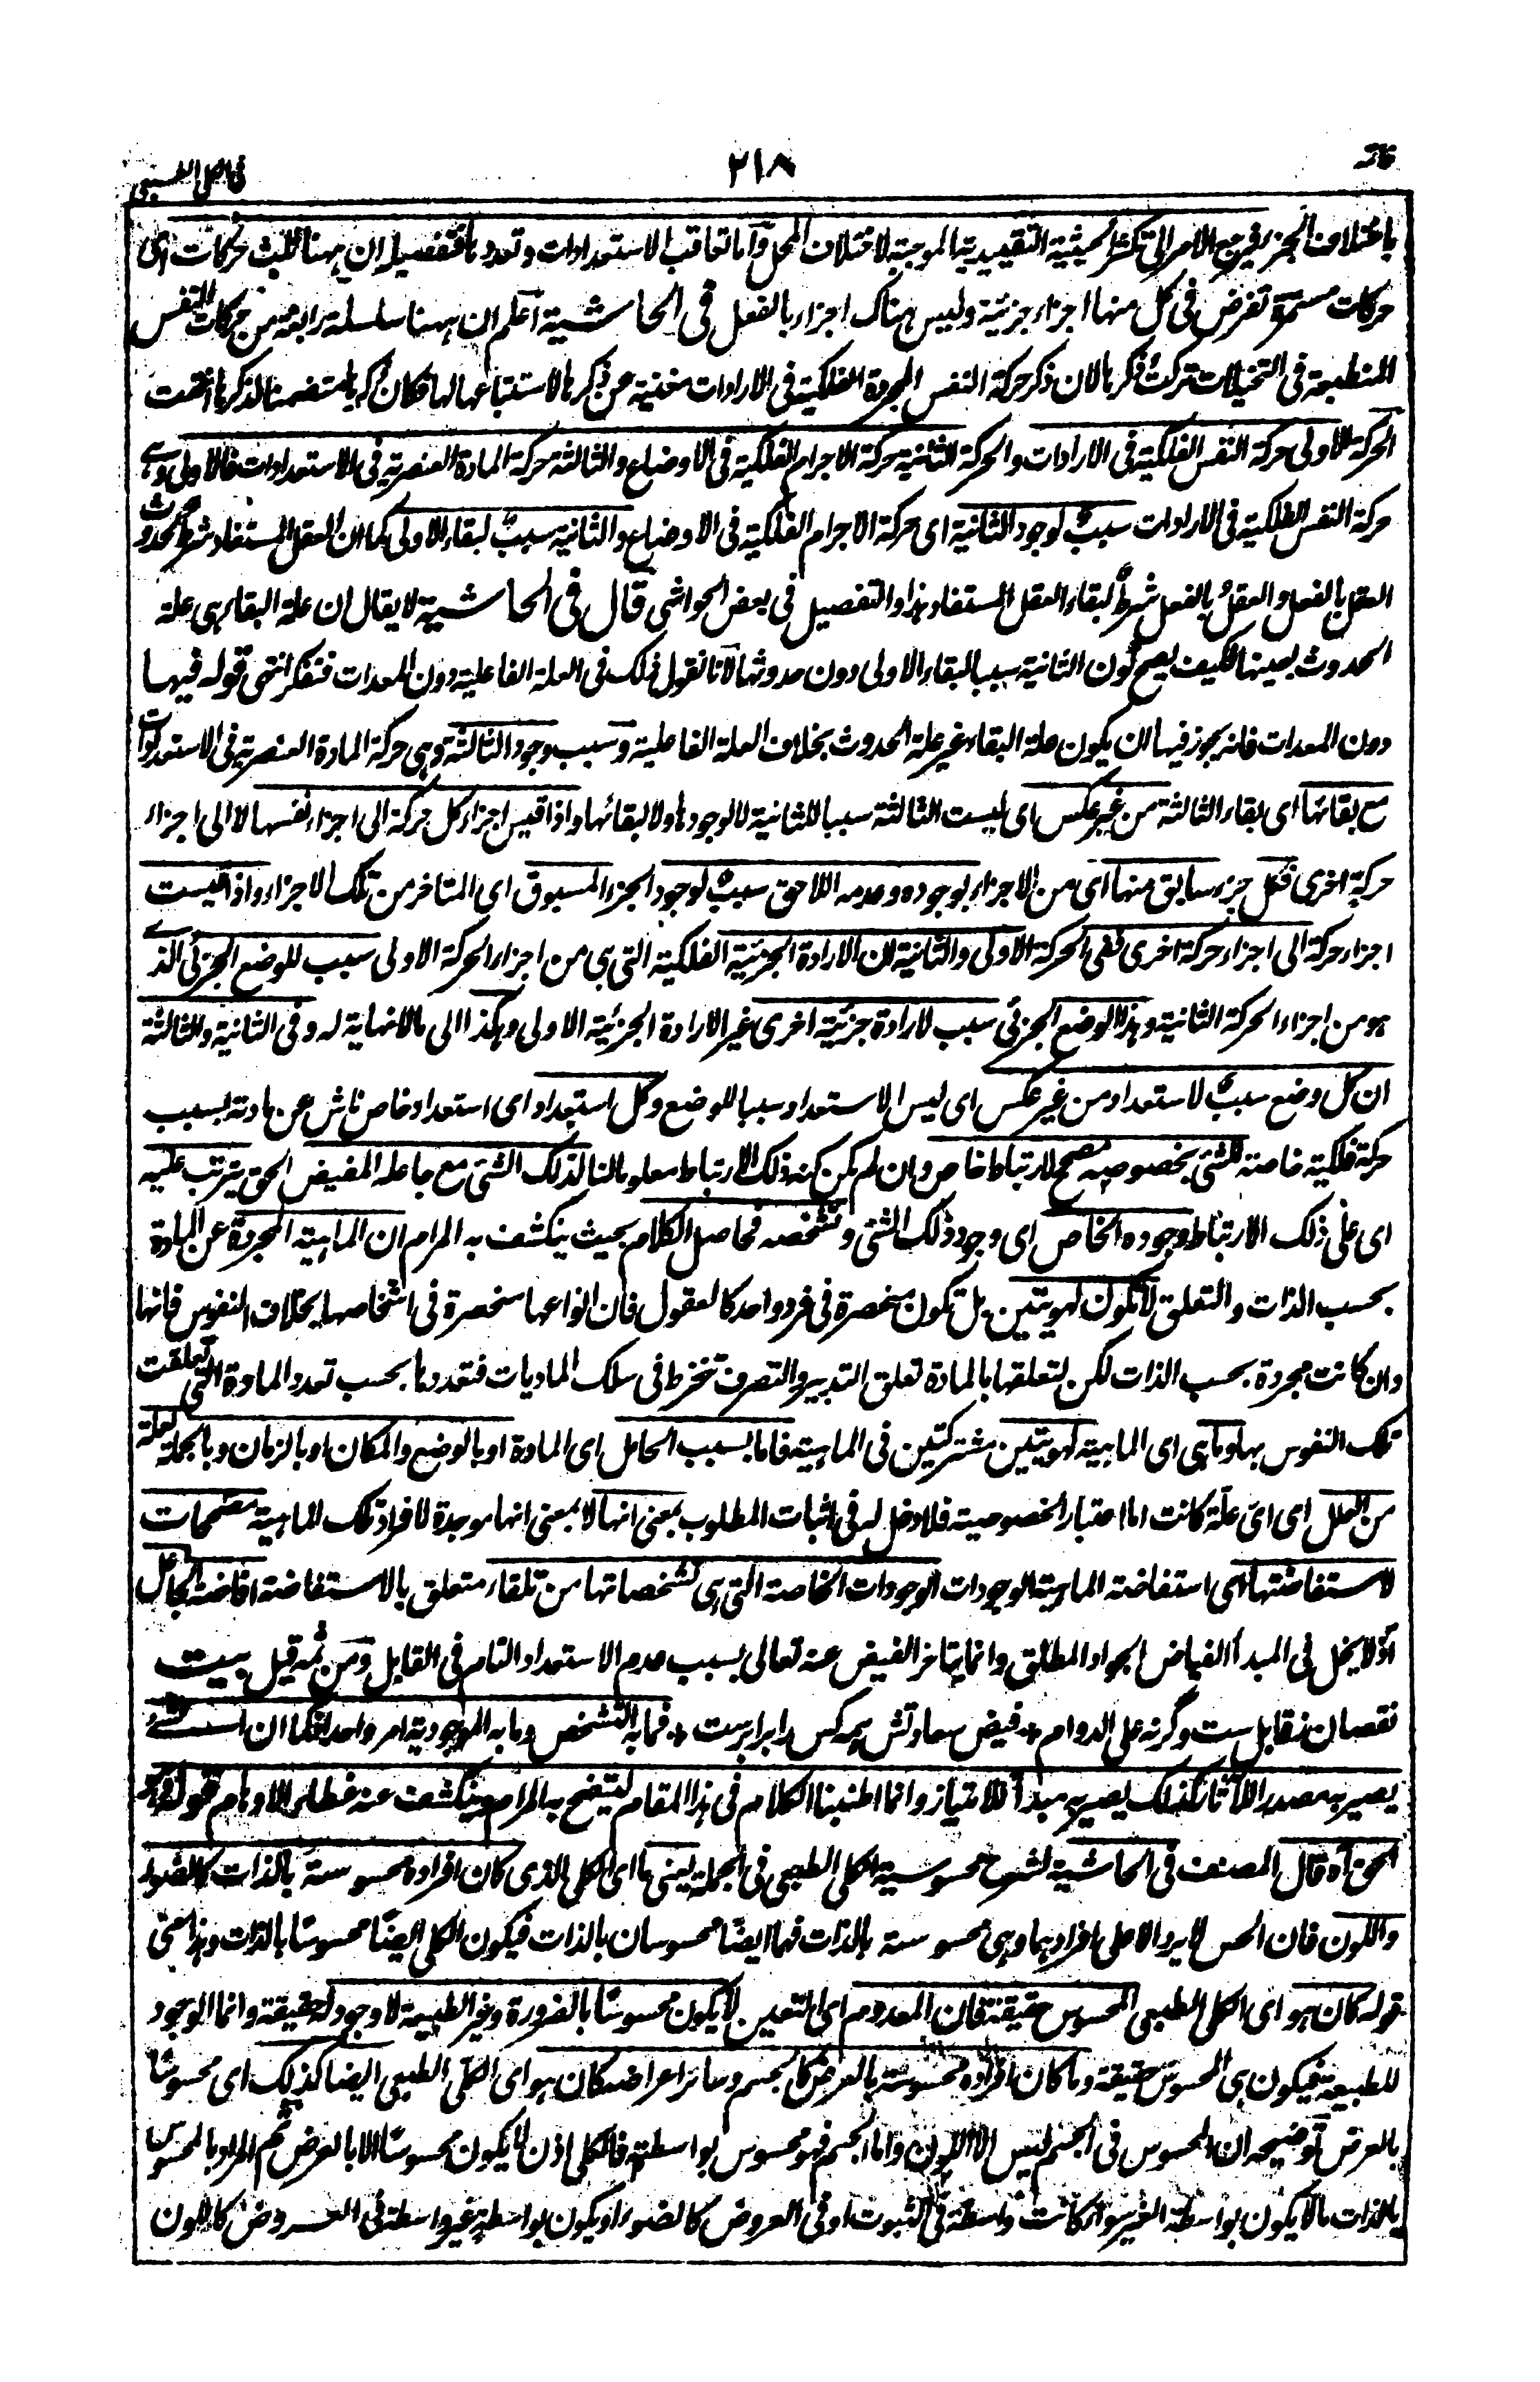 ٢١٨
باختلاف الجزء فيرجع الامر الى تكثر الحيثية التقييدية الموجبة لاختلاف المحل واما تعاقب الاستعدادات وتعددها فتفصيله ان ههنا ثلث حركات اى
حركات مستمرة تفرض فى كل منها اجزاء جزئية وليس هناك اجزاء بالفعل فى الحاشية اعلم ان ههنا سلسلة رابعة من حركات النفس
المنطبعة فى التخيلات تركت ذكرها لان ذكر حركة النفس المجردة الفلكية فى الارادات مغنية عن ذكرها لاستتباعها لها فكان ذكرها متضمنا لذكرها انتهت
الحركة الاولى حركة النفس الفلكية فى الارادات والحركة الثانية حركة الاجرام الفلكية فى الاوضاع والثالثة حركة المادة العنصرية فى الاستعدادات فالاولى وهى
حركة النفس الفلكية فى الارادات سبب لوجود الثانية اى حركة الاجرام الفلكية فى الاوضاع والثانية سبب لبقاء الاولى كما ان العقل المستفاد شرط لحدوث
العقل بالفعل والعقل بالفعل شرط لبقاء العقل المستفاد هذا والتفصيل فى بعض الحواشى قال فى الحاشية لا يقال ان علة البقاء هى علة
الحدوث بعينها فكيف يصح كون الثانية سببا لبقاء الاولى دون حدوثها لانا نقول ذلك فى العلة الفاعلية دون المعدات فتفكر انتهى قوله فيها
دون المعدات فانه يجوز فيها ان يكون علة البقاء غير علة الحدوث بخلاف العلة الفاعلية وسبب وجود الثالثة وهى حركة المادة العنصرية فى الاستعدادات
مع بقائها اى بقاء الثالثة من غير عكس اى ليست الثالثة سببا للثانية لا لوجودها ولا لبقائها واذا قيس اجزاء كل حركة الى اجزاء نفسها لا الى اجزاء
حركة اخرى فكل جزء سابق منها اى من الاجزاء بوجوده وعدمه اللاحق سبب لوجود الجزء المسبوق اى المتاخر من تلك الاجزاء واذا قيست
اجزاء حركة الى اجزاء حركة اخرى ففى الحركة الاولى والثانية لان الارادة الجزئية الفلكية التى هى من اجزاء الحركة الاولى سبب للوضع الجزئى الذى
هو من اجزاء الحركة الثانية وهذا الوضع الجزئى سبب لارادة جزئية اخرى غير الارادة الجزئية الاولى وهكذا الى مالانهاية له وفى الثانية والثالثة
ان كل وضع سبب لاستعداد من غير عكس اى ليس الاستعداد سببا للوضع وكل استعداد اى استعداد خاص ناش عن مادته بسبب
حركة فلكية خاصة للشئ بخصوصه مصحح لارتباط خاص وان لم يكن كنه ذلك الارتباط معلوما لنا لذلك الشئ مع جاعله المفيض الحق يترتب عليه
اى على ذلك الارتباط وجوده الخاص اى وجود ذلك الشئ وتشخصه فحاصل الكلام بحيث ينكشف به المرام ان الماهية المجردة عن المادة
بحسب الذات والتعلق لا تكون لهويتين بل تكون منحصرة فى فرد واحد كالعقول فان انواعها منحصرة فى اشخاصها بخلاف النفوس فانها
وان كانت مجردة بحسب الذات لكن لتعلقها بالمادة تعلق التدبير والتصرف تنخرط فى سلك الماديات فتعددها بحسب تعدد المادة التى تعلقت
تلك النفوس بها وما هى اى الماهية لهويتين مشتركتين فى الماهية فاما بسبب الحامل اى المادة او بالوضع والمكان او بالزمان وبالجملة لعلة
من العلل اى اى علة كانت اما اعتبار الخصوصية فلا دخل له فى اثبات المطلوب بمعنى انها لا بمعنى انها موجدة لافراد تلك الماهية مصححات
لاستفاضتها اى استفاضة الماهية الوجودات الوجودات الخاصة التى هى تشخصاتها من تلقاء متعلق بالاستفاضة افاضة الجاعل
اذ لا بخل فى المبدأ الفياض الجواد المطلق وانما يتاخر الفيض عنه تعالى بسبب عدم الاستعداد التام فى القابل ومن ثمه قيل بيت
نقصان ز قابل ست وگرنه على الدوام + فيض سعادتش همه كس را برابر ست + فما به التشخص وما به الموجودية امر واحد فكما ان الشئ
يصير به مصدر الآثار كذلك يصير به مبدأ للامتياز وانما اطنبنا الكلام فى هذا المقام ليتضح به المرام وينكشف عنه غطاء الاوهام قوله
الحق آه قال المصنف فى الحاشية لشرح محسوسية الكلى الطبعى فى الجملة يعنى ما اى الكلى الذى كان افراده محسوسة بالذات كالضوء
واللون فان الحس لا يرد الا على افرادهما وهى محسوسة بالذات فهما ايضا محسوسان بالذات فيكون الكلى ايضا محسوسا بالذات وهذا معنى
قوله كان هو اى الكلى الطبعى المحسوس حقيقة فان المعدوم اى التعين لا يكون محسوسا بالضرورة وغير الطبيعة لا وجود له حقيقة وانما الوجود
للطبيعة فيكون هى المحسوس حقيقة وما كان افراده محسوسة بالعرض كالجسم وسائر اعراضه كان هو اى الكلى الطبعى ايضا كذلك اى محسوسا
بالعرض توضيحه ان المحسوس فى الجسم ليس الا اللون واما الجسم فهو محسوس بواسطته فالكلى اذن لا يكون محسوسا الا بالعرض ثم المراد بالمحسوس
بالذات ما لا يكون بواسطة الغير سواء كانت واسطة فى الثبوت او فى العروض كالضوء او يكون بواسطة غير واسطة فى العروض كاللون